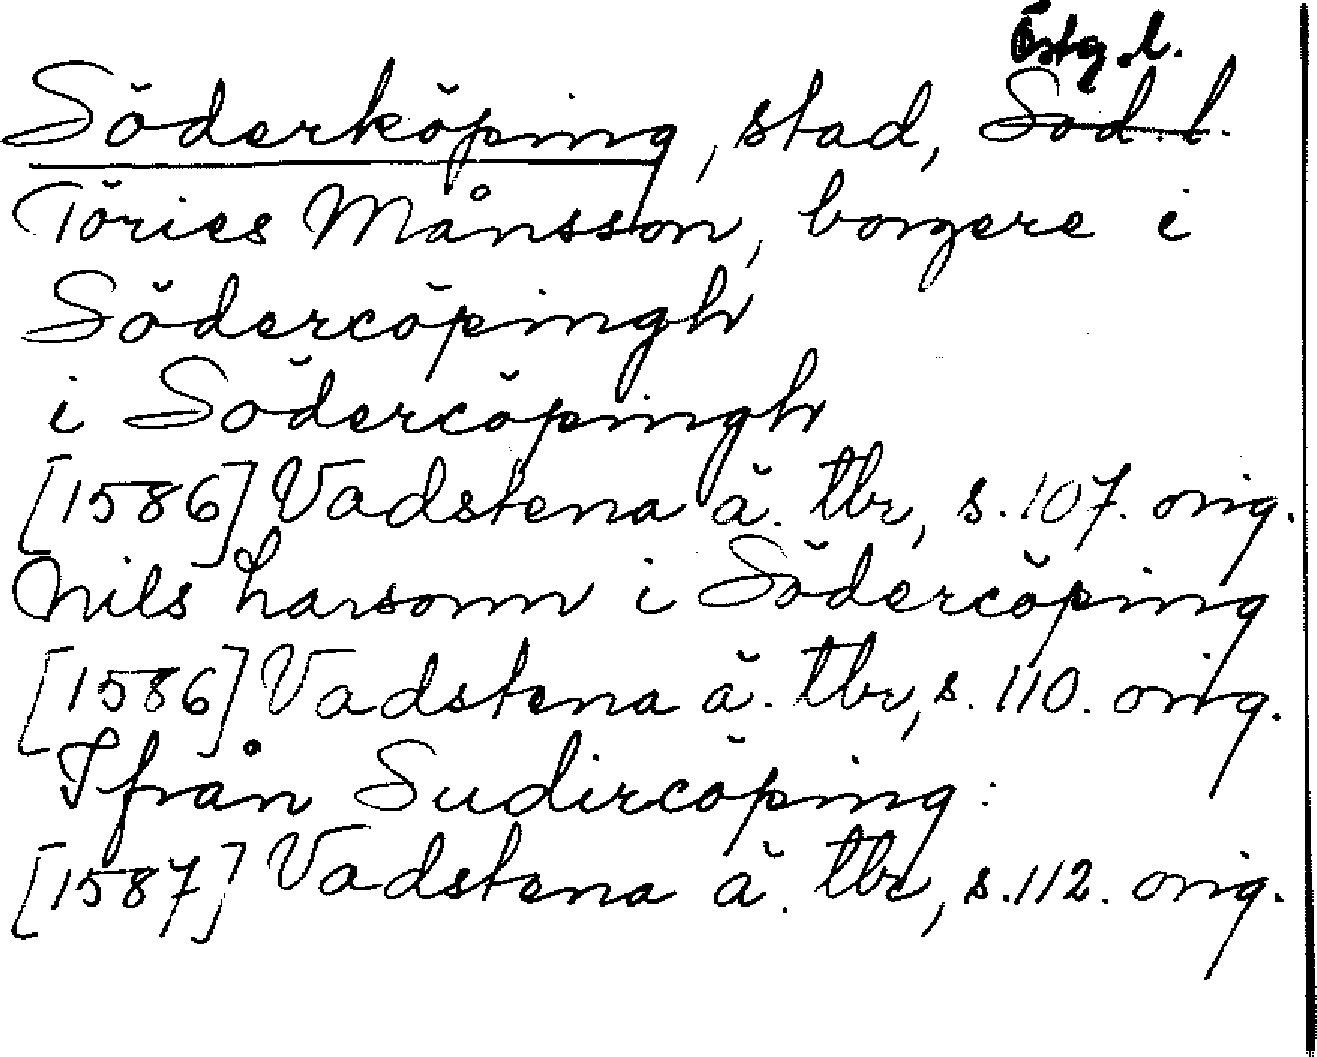 Östg. l.
Söderköping, stad, Söd. l.
Töries Månsson, borgere i
Södercöpingh
i Södercöpingh
[1586] Vadstena ä. tbr, s. 107. orig.
Nils Larsonn i Södercöping
[1586] Vadstena ä. tbr, s. 110. orig.
Ifrån Sudircöping:
[1587] Vadstena ä. tbr, s. 112. orig.